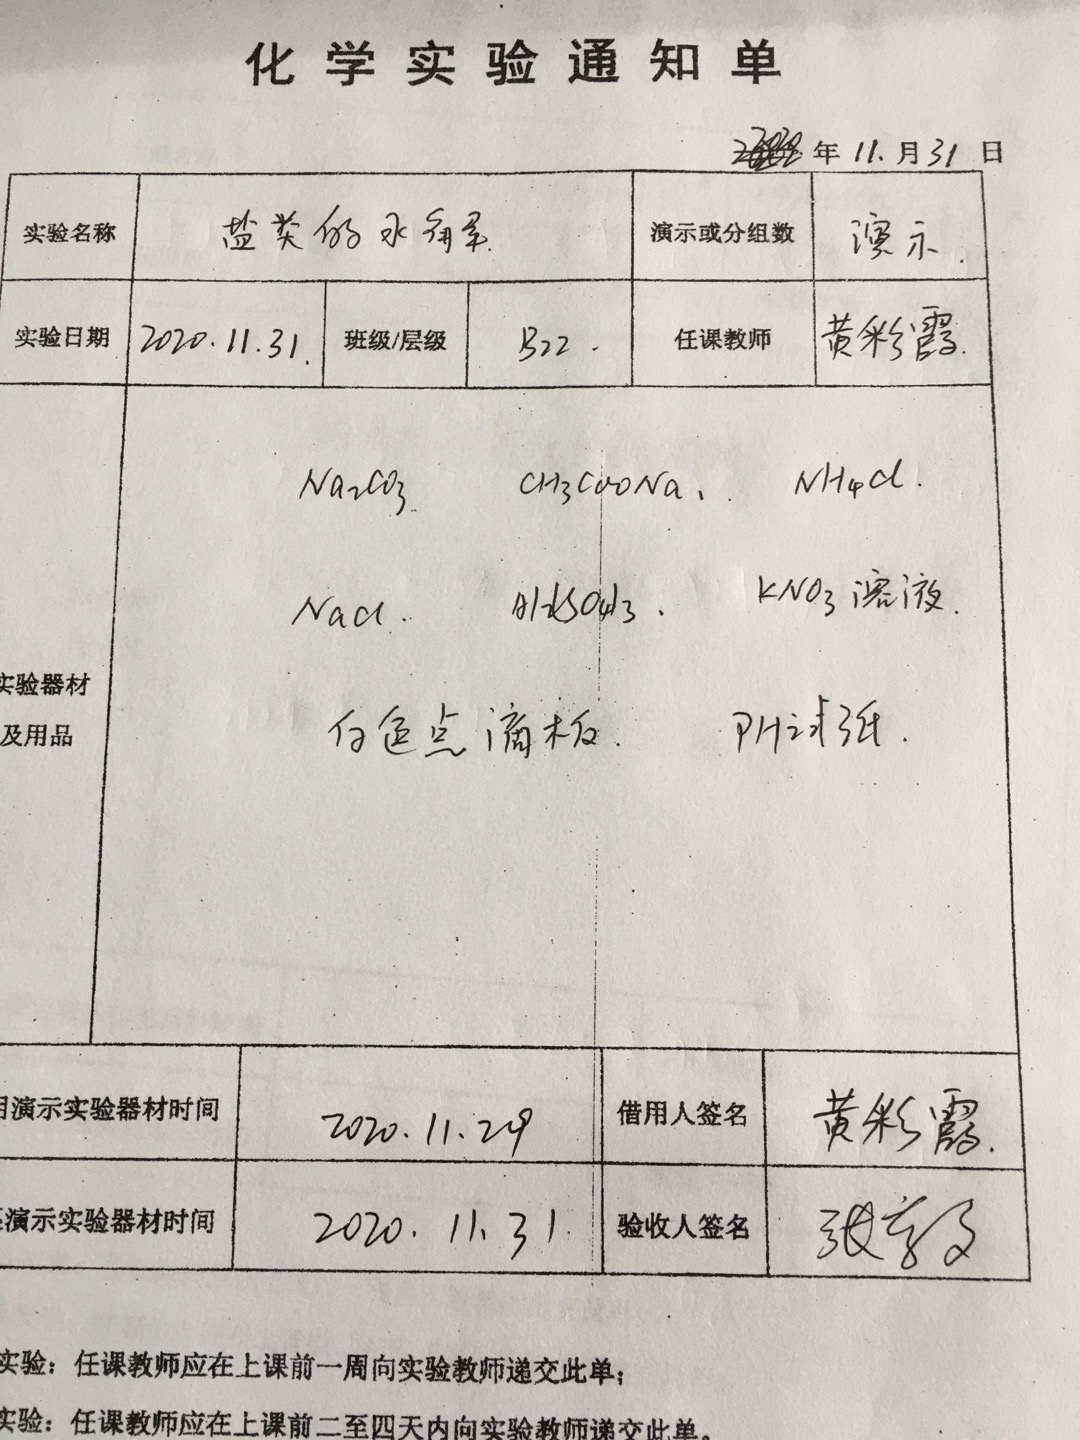 化学实验通知单
年 11.月31 日
实验名称 盐类的水解 演示或分组数 演示.
实验日期 2020.11.31. 班级/层级 B22. 任课教师 黄彩霞.
Na2CO3 CH3COONa、 NH4Cl.
NaCl. Al2(SO4)3. KNO3溶液.
实验器材
及用品
白色点滴板. PH试纸.
用演示实验器材时间 2020.11.29 借用人签名 黄彩霞.
演示实验器材时间 2020.11.31. 验收人签名
实验：任课教师应在上课前一周向实验教师递交此单；
实验：任课教师应在上课前二至四天内向实验教师递交此单。